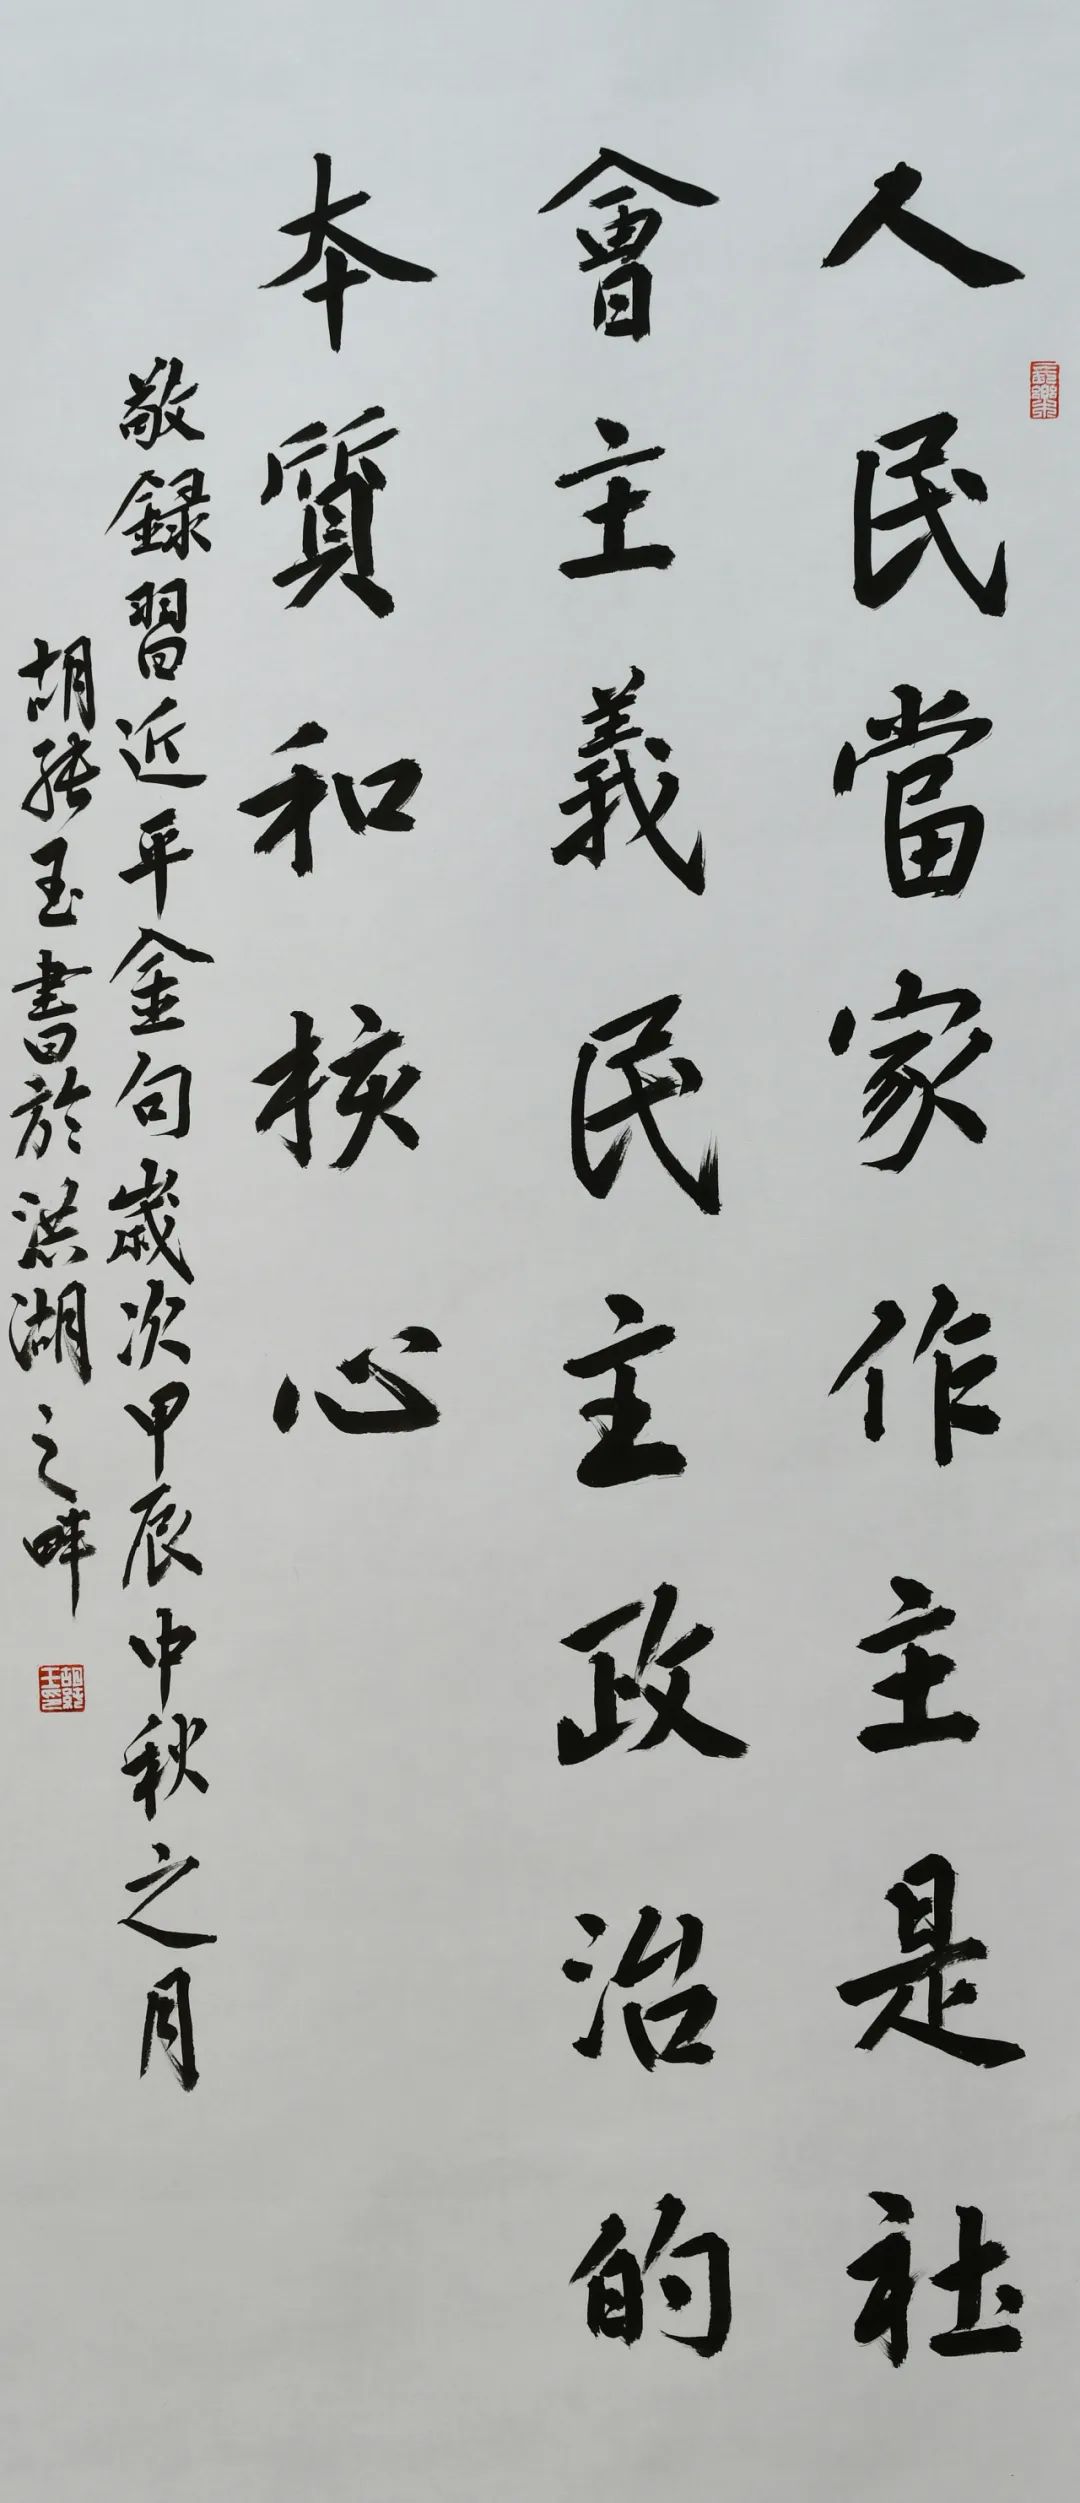 人民當家作主是社
會主義民主政治的
本質和核心
敬録習近平金句歲次甲辰中秋之月
胡玉書於洪湖之畔